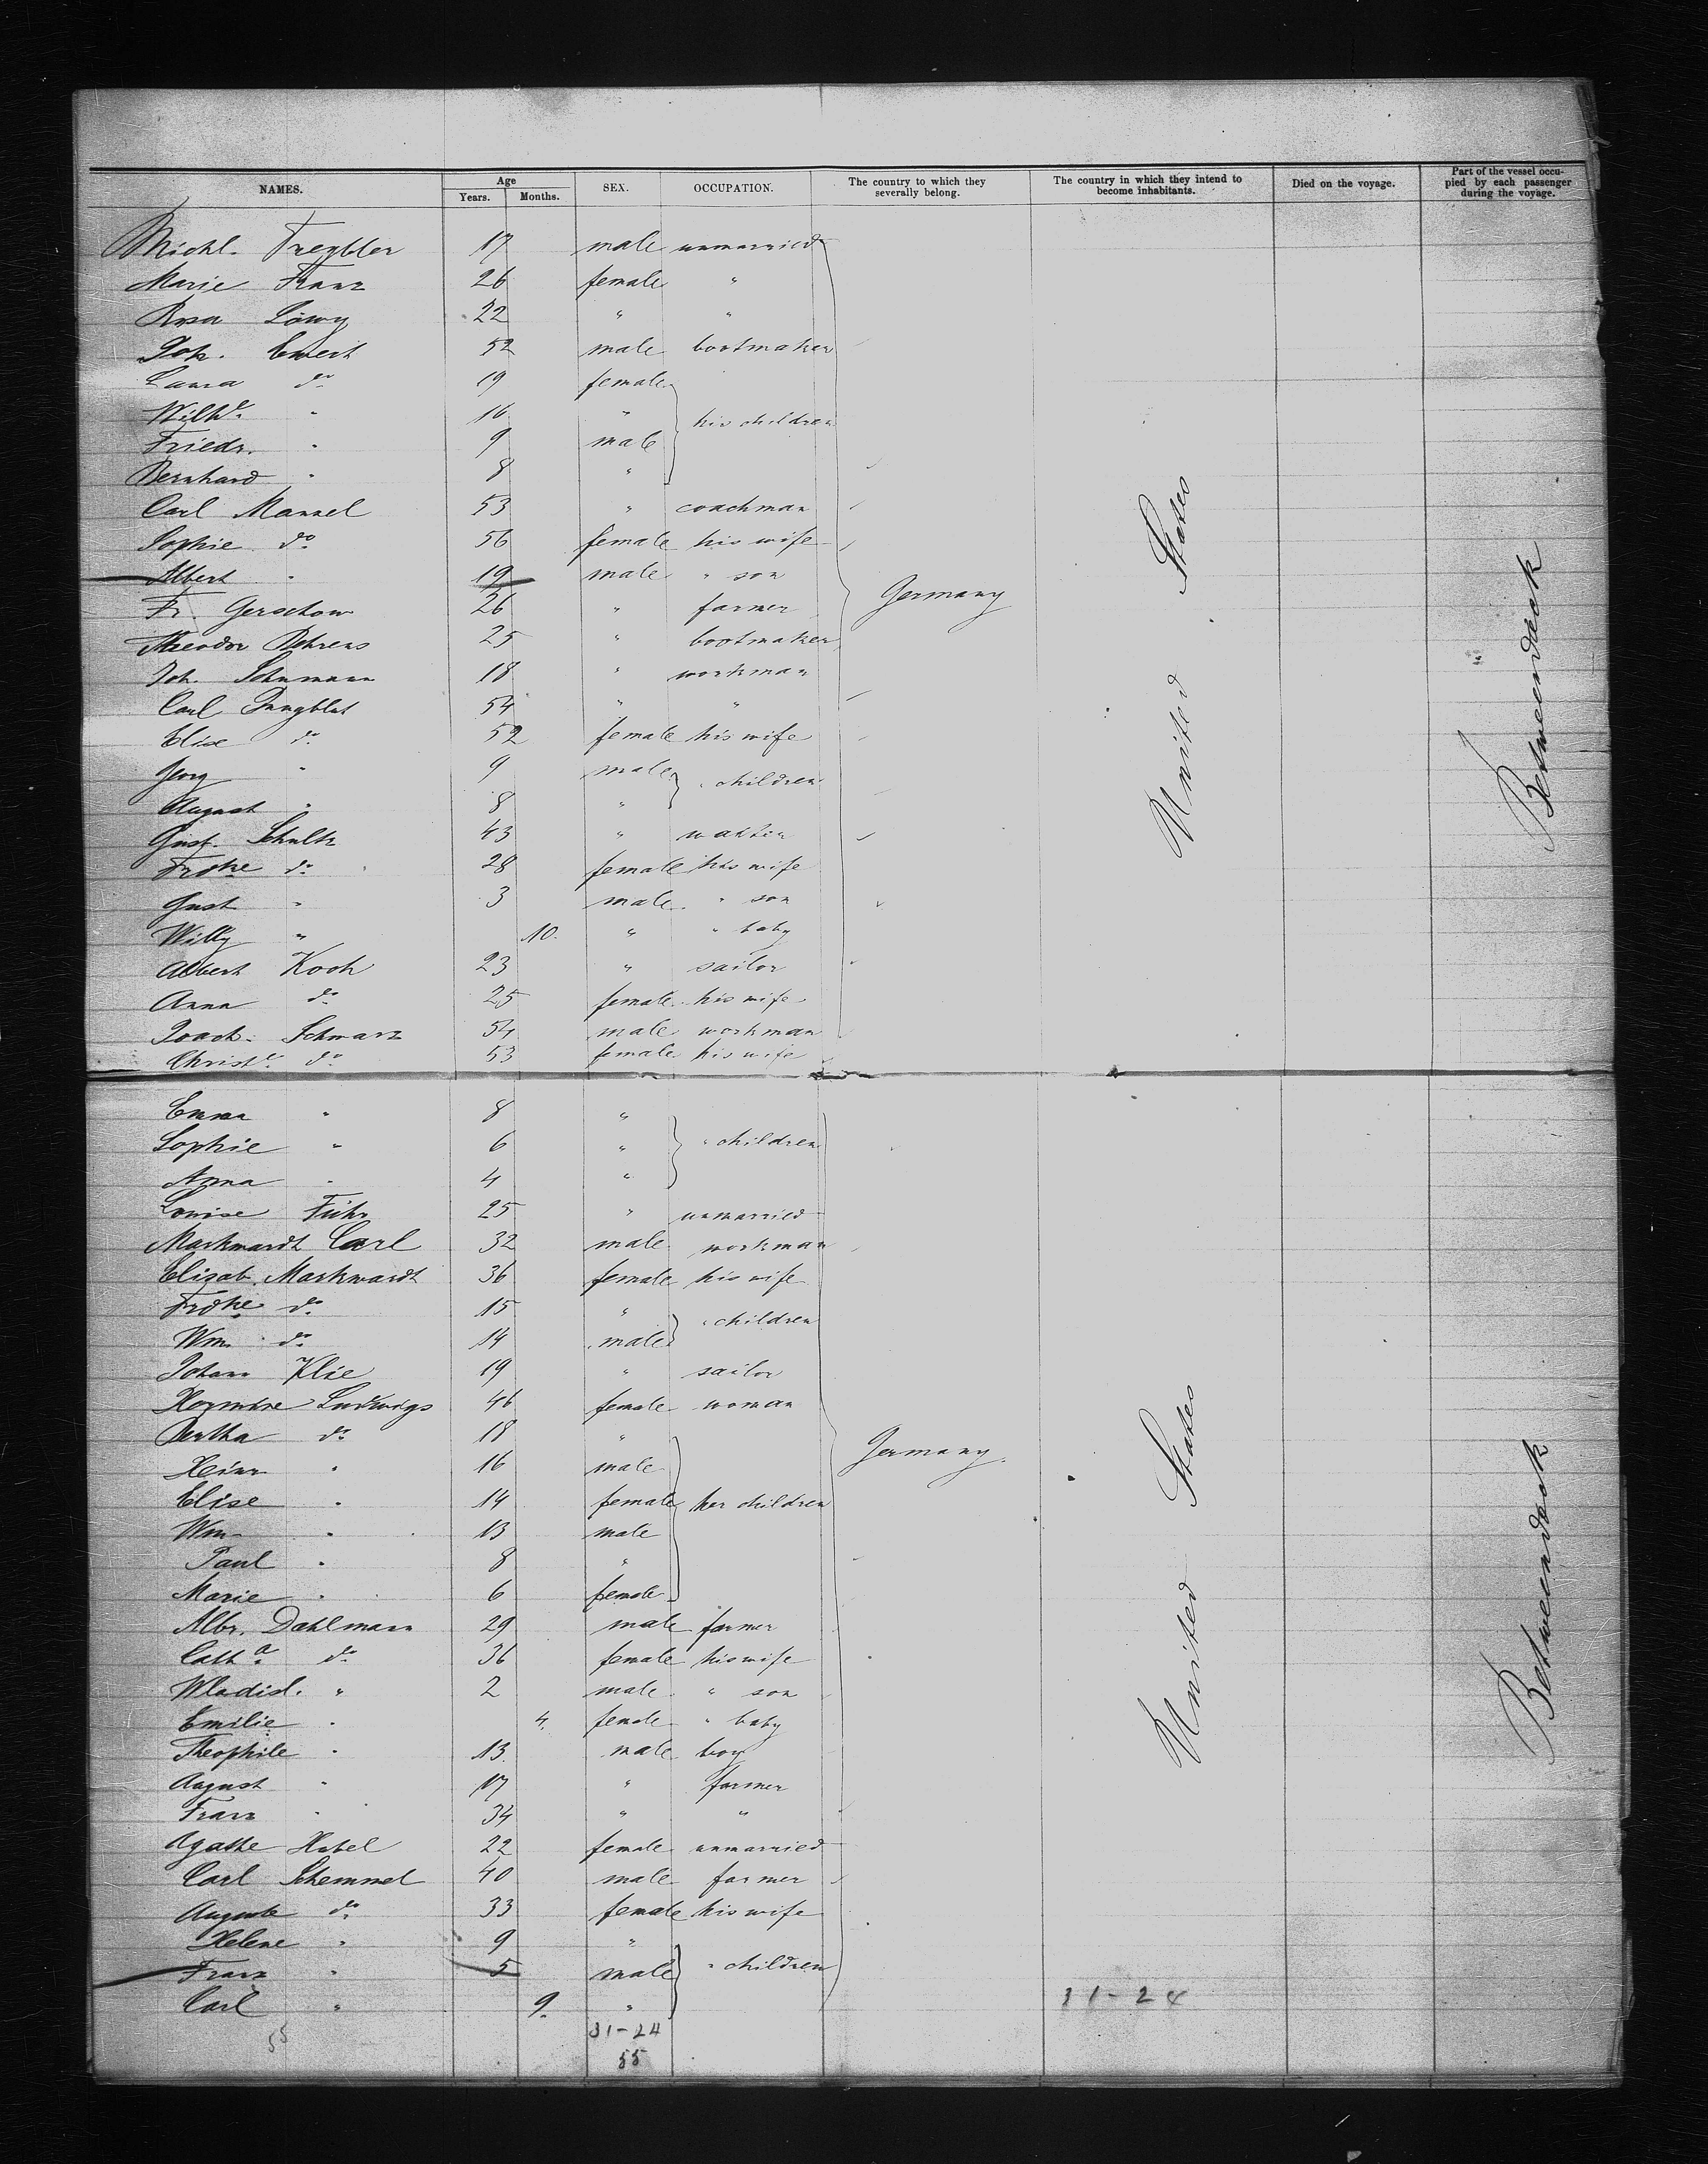 NAMES. Age Years. Months. SEX. OCCUPATION. The country to which they severally belong. The country in which they intend to become inhabitants. Died on the voyage. Part of the vessel occupied by each passenger during the voyage.
Michl. 17 male unmarried
Marie Franz 26 female "
Rosa Löwy 22 " "
Joh. Ewert 52 male bootmaker
Laura do 19 female
Wilhe. " 16 " his children
Friedr. " 9 male
Bernhard " 8 "
Carl Manzel 53 " coachman
Sophie do 56 female his wife
Albert " 19 male " son
Fr. Gerschow 26 " farmer
Theodor Behrens 25 " bootmaker
Joh. Schumann 18 " workman
Carl Jungblut 54 " "
Elise do 52 female his wife
Georg " 9 male " children
August " 8 "
Gust. Schultz 43 "
Frdke do 28 female his wife
Gust " 3 male " son
Willy " 10. " " baby
Albert Koch 23 " sailor
Anna do 25 female his wife
Joach. Schwarz 54 male workman
Christe. do 53 female his wife
Germany
United States
Betweendeck
Emma " 8 "
Sophie " 6 " " children
Anna " 4 "
Louise Führ 25 " unmarried
Markwardt Carl 32 male workman
Elisab. Markwardt 36 female his wife
Frdke do 15 " " children
Wm. do 14 male
Johann Klie 19 " sailor
Ludwigs 46 female woman
Bertha do 18 "
Heinr " 16 male
Elise " 14 female her children
Wm " 13 male
Paul " 8 "
Marie " 6 female
Albr. Dahlmann 29 male farmer
Catha. do 36 female his wife
Wladisl. " 2 male " son
Emilie " 4. female " baby
Theophile " 13 male boy
August " 17 " farmer
Franz " 34 " "
Agathe Habel 22 female unmarried
Carl Schemmel 40 male farmer
Auguste do 33 female his wife
Helene " 9 "
Franz " 5 male " children
Carl " 9. "
Germany.
United States
Betweendeck
31-24
55 31-24
55